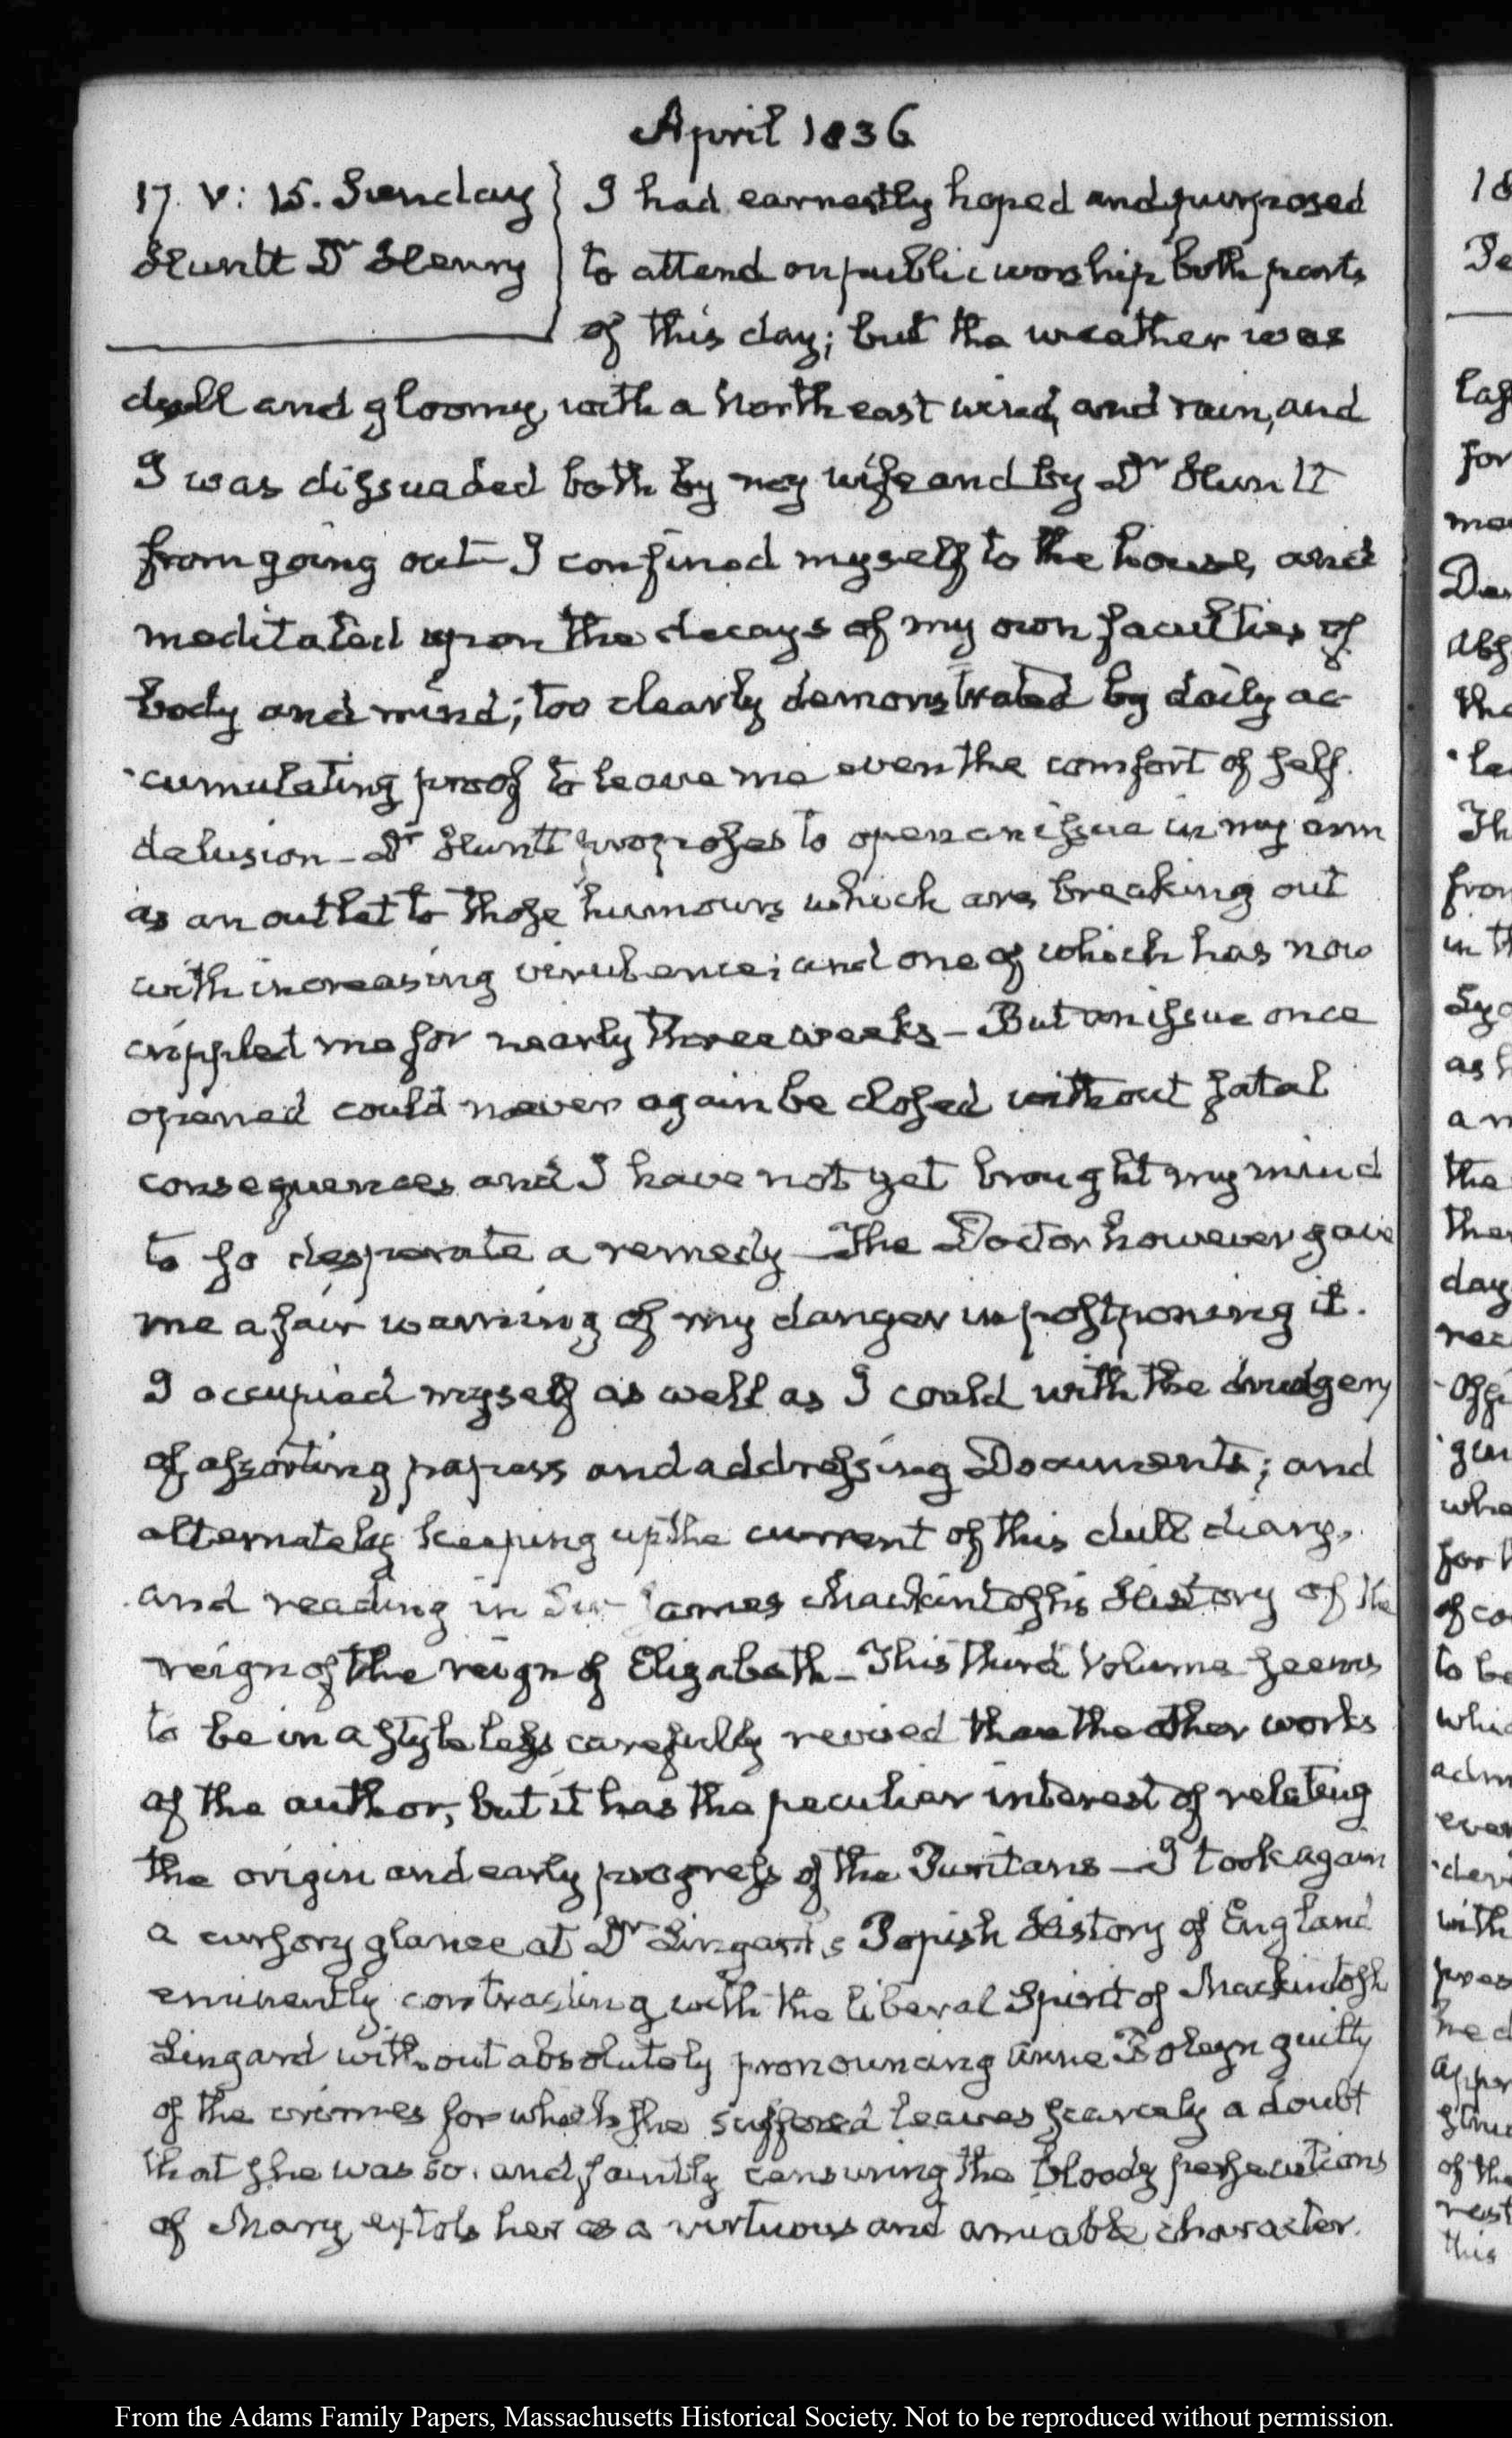 April 1836
17. V: 15. Sunday
Huntt Dr Henry
I had earnestly hoped and purposed
to attend on public worship both parts
of this day; but the weather was
dull and gloomy, with a North east wind, and rain, and
I was dissuaded both by my wife and by Dr Huntt
from going out— I confined myself to the house, and
meditated upon the decays of my own faculties of
body and mind; too clearly demonstrated by daily ac-
-cumulating proof to leave me even the comfort of self.
delusion— Dr Huntt proposes to open an issue in my arm
as an outlet to those humours which are breaking out
with increasing virulence; and one of which has now
crippled me for nearly three weeks— But an issue once
opened could never again be closed without fatal
consequences and I have not yet brought my mind
to so desperate a remedy— The Doctor however gave
me a fair warning of my danger in postponing it.
I occupied myself as well as I could with the drudgery
of assorting papers and addressing Documents; and
alternately keeping up the current of this dull diary,
and reading in Sir James Mackintosh's History of the
reign of the reign of Elizabeth— This third Volume seems
to be in a style less carefully revised than the other works
of the author, but it has the peculiar interest of relating
the origin and early progress of the Puritans— I took again
a cursory glance at Dr Lingard's Popish History of England
eminently contrasting with the liberal Spirit of Mackintosh
Lingard without absolutely pronouncing Anne Boleyn guilty
of the crimes for which she suffered leaves scarcely a doubt
that she was so. and faintly censuring the bloody persecutions
of Mary, extols her as a virtuous and amiable character.
From the Adams Family Papers, Massachusetts Historical Society. Not to be reproduced without permission.